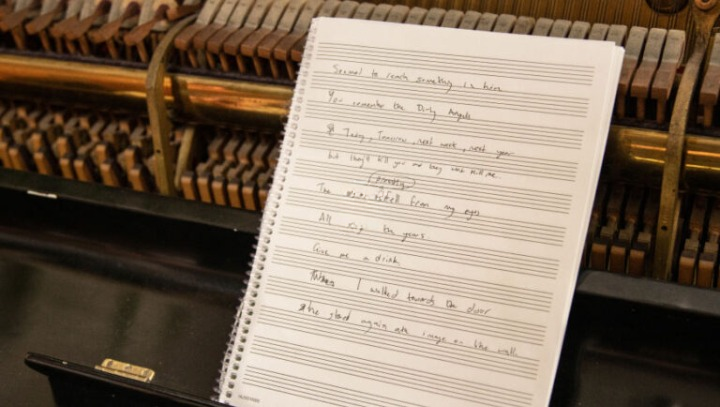 Seemed to reach something in him
You remember the Dirty Angels
Today, Tomorrow, next week, next year
but they'll kill you and they will kill me
The fell from my eyes
All the years
Give me a drink
I walked towards the door
She stood again at image on the wall